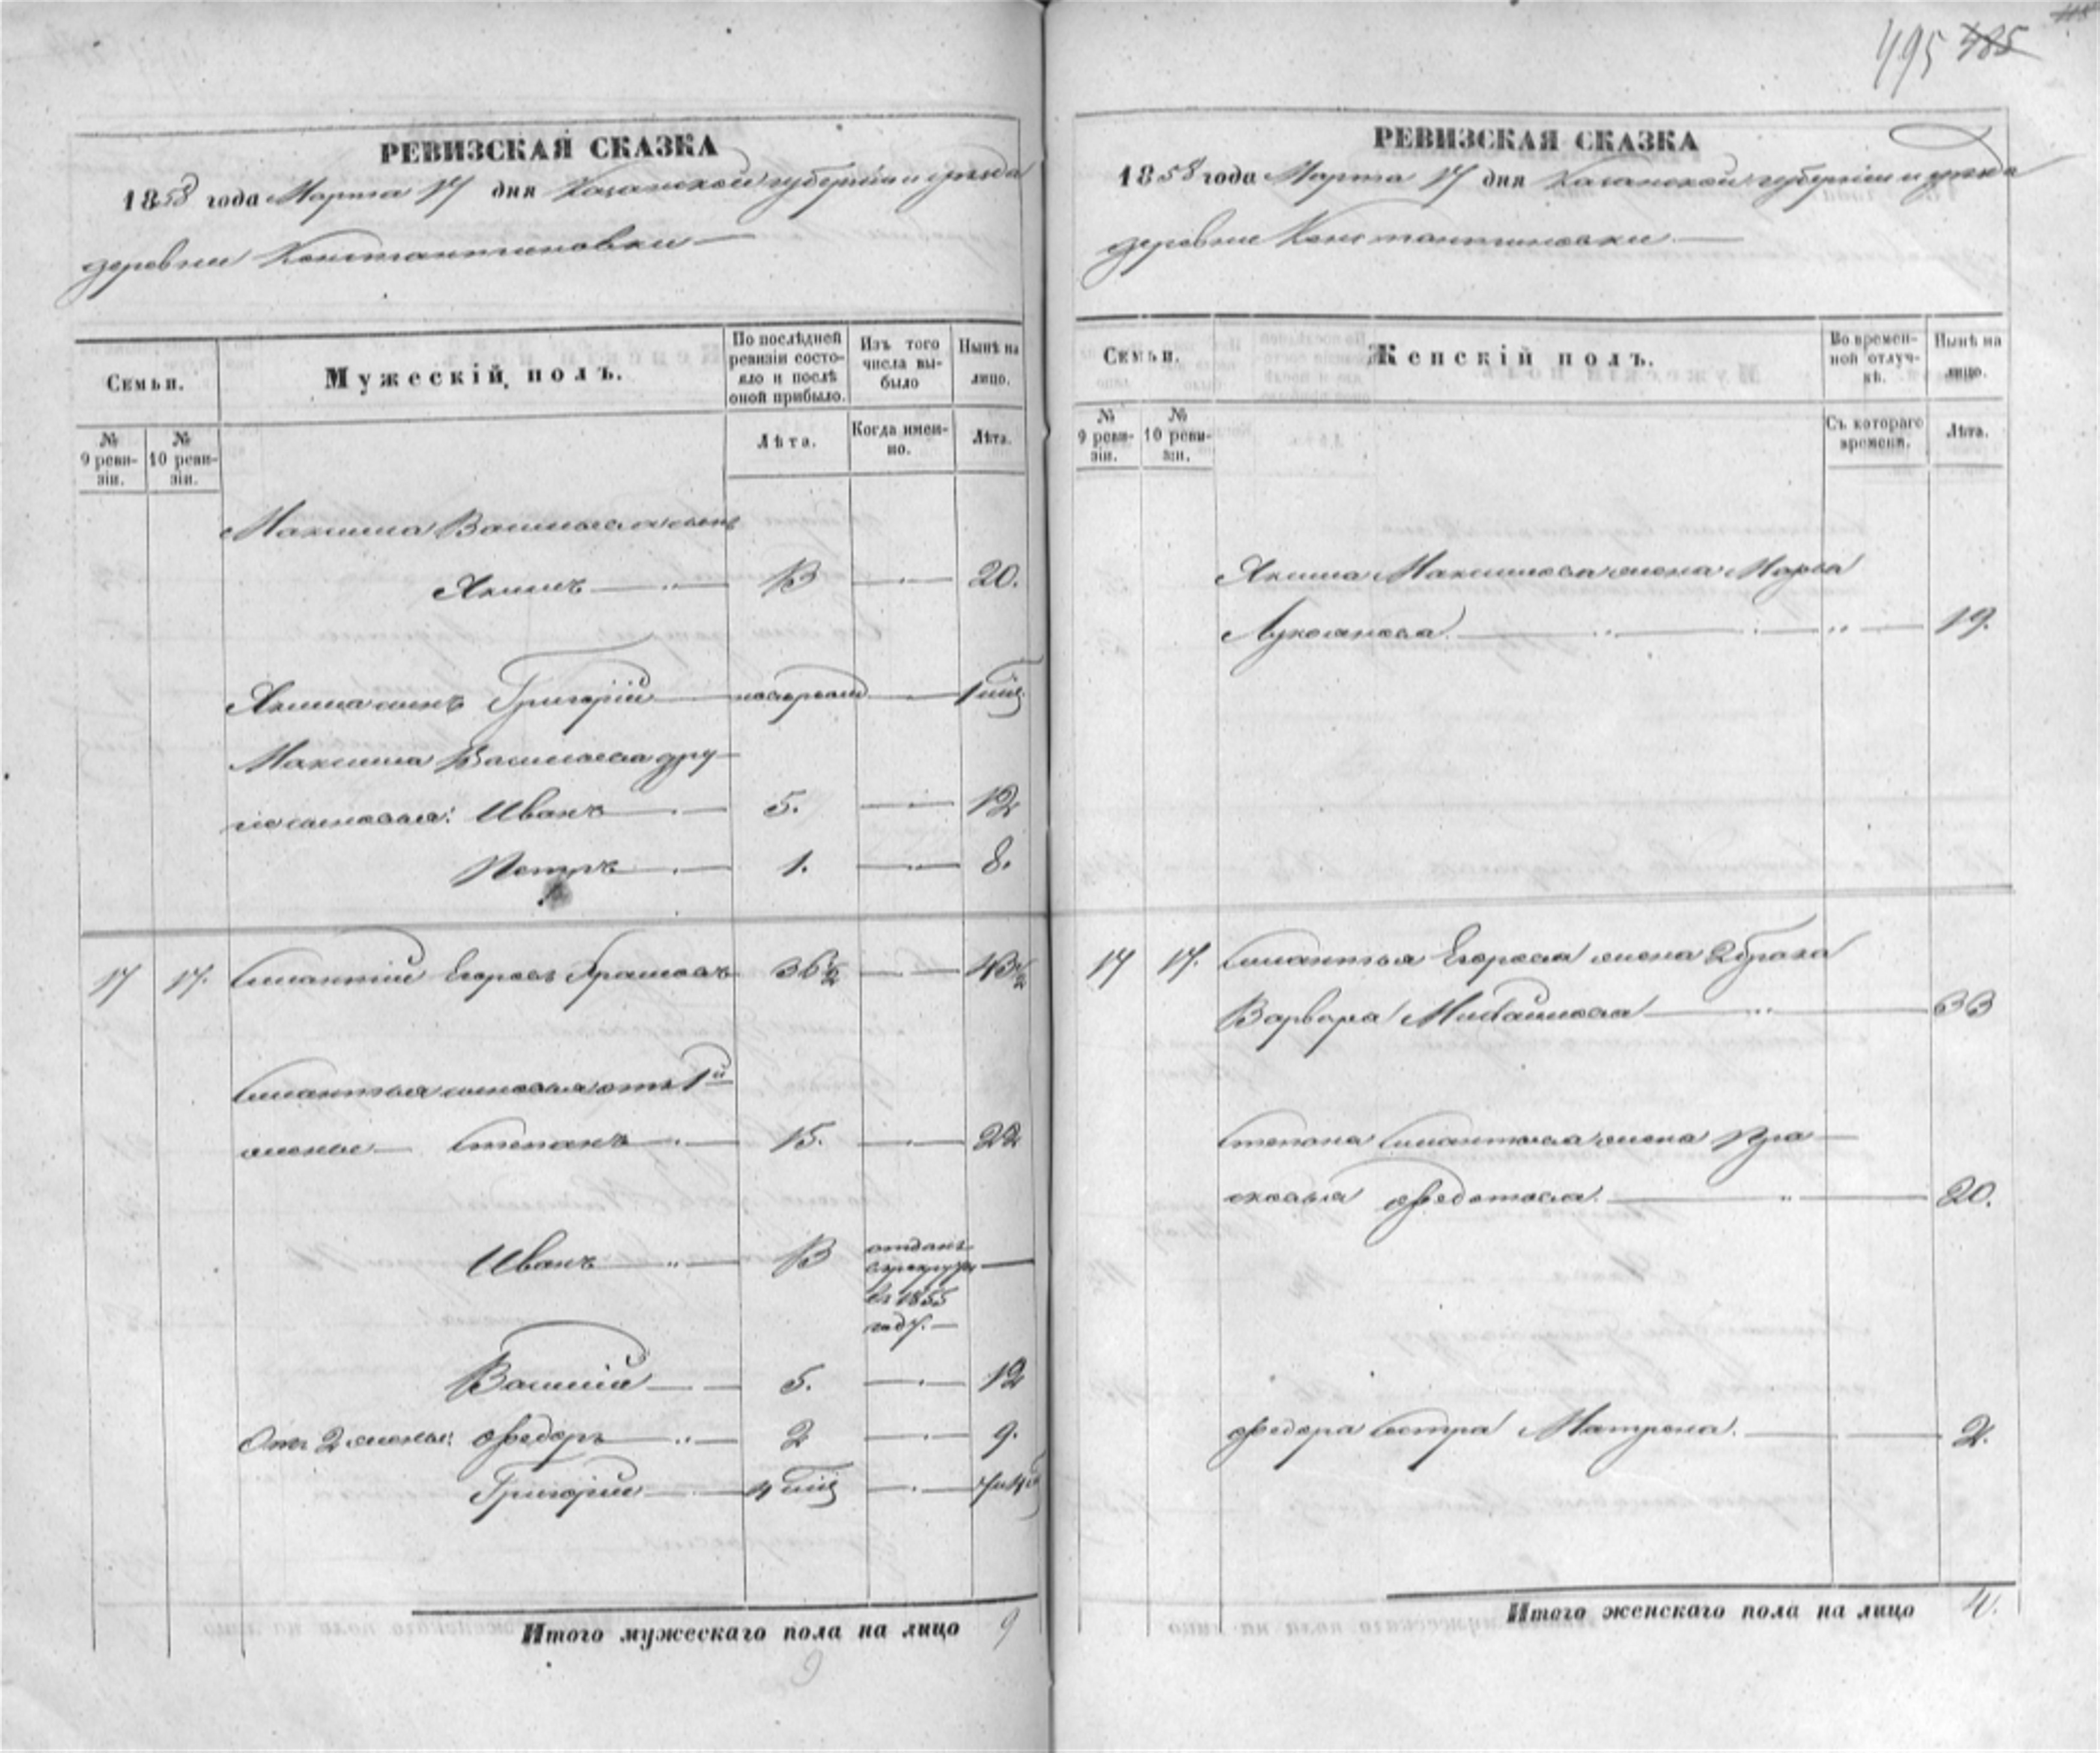 495 485
РЕВИЗСКАЯ СКАЗКА
1858 года Марта 17 дня Казанской губерніи и уѣзда
деревни Константиновки
Семьи.
Мужескій полъ.
По послѣдней ревизіи состояло и послѣ оной прибыло.
Изъ того числа выбыло
Нынѣ на лицо.
№ 9 ревизіи.
№ 10 ревизіи.
Лѣта.
Когда именно.
Лѣта.
Максима Васильева сынъ
Якимъ 13 20.
Якима сынъ Григорій 1
Максима Васильева дру-
гіе сыновья: Иванъ 5. 12
Петръ 1. 8.
17 17. Силантій Егоровъ 36½ 43½
Силантья сыновья отъ 1й
жены Степанъ 15. 22
Иванъ 13 отданъ
въ рекруты
въ 1855
году.
Василій 5. 12
Отъ 2 жены: Федоръ 2 9.
Григорій 4
Итого мужескаго пола на лицо 9
РЕВИЗСКАЯ СКАЗКА
1858 года Марта 17 дня Казанской губерніи и уѣзда
деревни Константиновки
Семьи.
Женскій полъ.
Во временной отлучкѣ.
Нынѣ на лицо.
№ 9 ревизіи.
№ 10 ревизіи.
Съ котораго времени.
Лѣта.
Якима Максимова жена Марья
Лукоянова 19.
17 17. Силантья Егорова жена 2 брака
Варвара Михайлова 33
Степана Силантьева жена Пра-
сковья Федотова 20.
Федора сестра Матрена 2.
Итого женскаго пола на лицо 4.